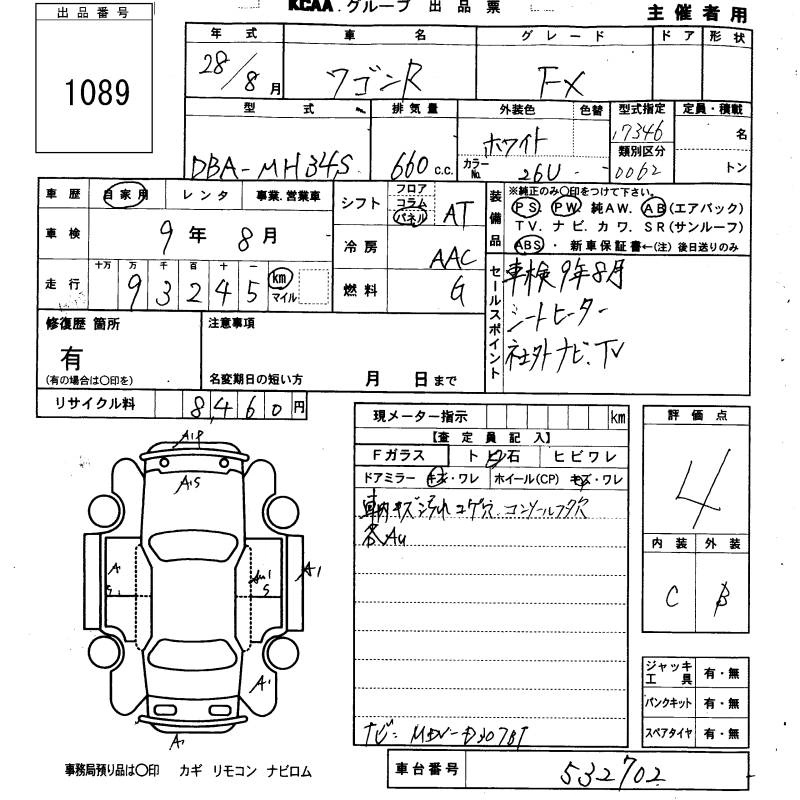 KCAA.グループ 出品票
主催者用
出品番号
1089
年式 車名 グレード ドア 形状
28/8月 ワゴンR FX
型式 排気量 外装色 色替 型式指定 定員・積載
DBA-MH34S 660c.c. ホワイト カラーNo. 26U 17346 名
類別区分
0062 トン
車歴 自家用 レンタ 事業.営業車
車検 9年 8月
走行 十万 万 千 百 十 一
93245 km マイル
シフト フロア コラム パネル AT
冷房 AAC
燃料 G
装備品
※純正のみ○印をつけて下さい。
PS. PW. 純AW. AB(エアバック)
TV. ナビ. カワ. SR(サンルーフ)
ABS・新車保証書←(注)後日送りのみ
セールスポイント
車検9年8月
シートヒーター
社外ナビ.TV
修復歴 箇所
有
(有の場合は○印を)
注意事項
名変期日の短い方 月 日まで
リサイクル料 8,460円
現メーター指示 km
【査定員記入】
Fガラス ト ビ石 ヒビワレ
ドアミラー キズ・ワレ ホイール(CP) キズ・ワレ
車内キズ コゲ穴.コンソールフタ穴
各AU
ナビ:MDV-D307BT
評価点
4
内装 外装
C B
ジャッキ工具 有・無
パンクキット 有・無
スペアタイヤ 有・無
A1P
A.S
A
S
AU1
S
A1
A1
A1
事務局預り品は○印 カギ リモコン ナビロム
車台番号 532702